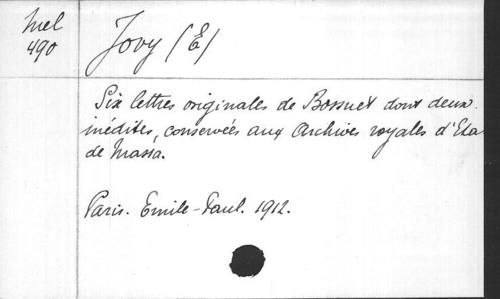 Mel
490
Jovy (E)
Six lettres originales de Bossuet dont deux
inédites, conservées aux Archives royales d'Eta
de Massa.
Paris. Emile-Paul. 1912.